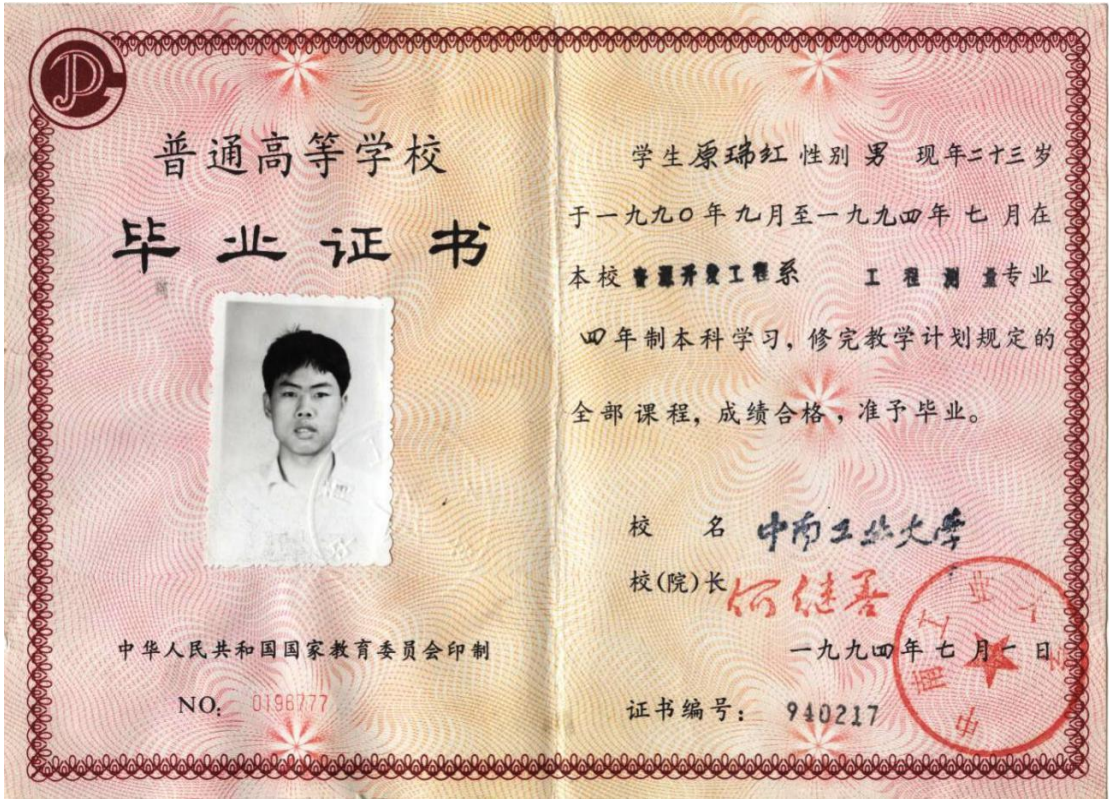 普通高等学校
毕业证书
中华人民共和国国家教育委员会印制
NO: 0196777
学生 原瑞红 性别 男 现年二十三岁
于一九九〇年九月至一九九四年 七 月在
本校 资源开发工程系 工程测量专业
四年制本科学习，修完教学计划规定的
全部课程，成绩合格，准予毕业。
校 名 中南工业大学
校(院)长 何继善
一九九四年七月一日
证书编号： 940217
中南工业大